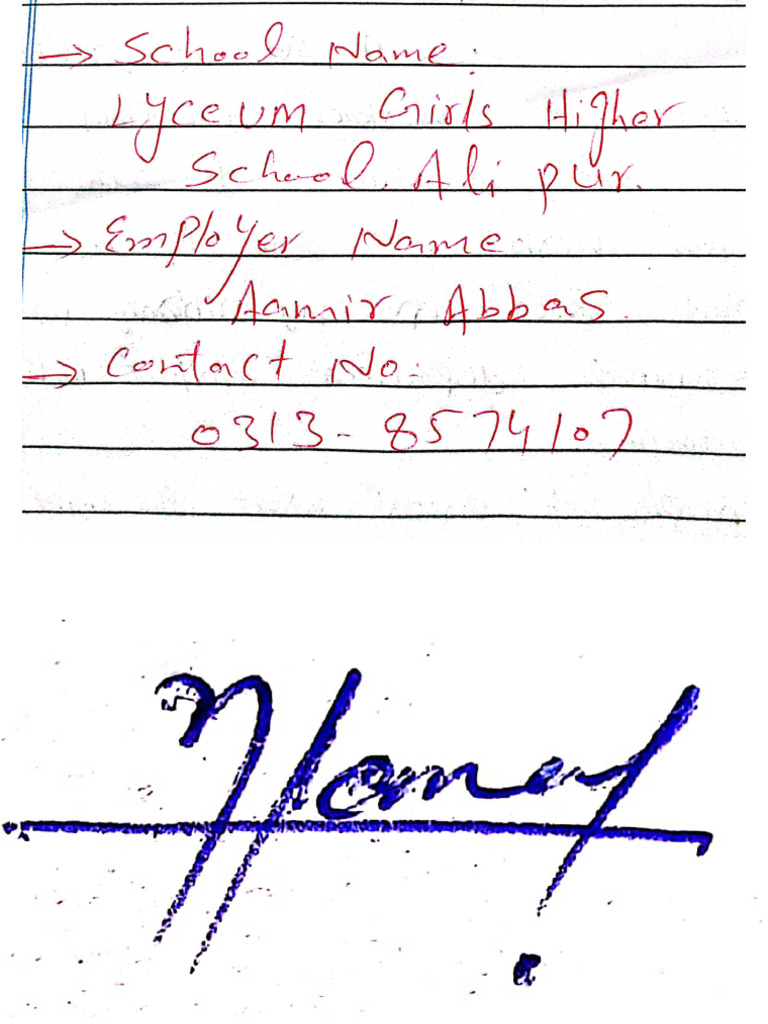 → School Name:
Lyceum Girls Higher
School. Ali pur.
→ Employer Name:
Aamir Abbas.
→ Contact No:
0313-8574107